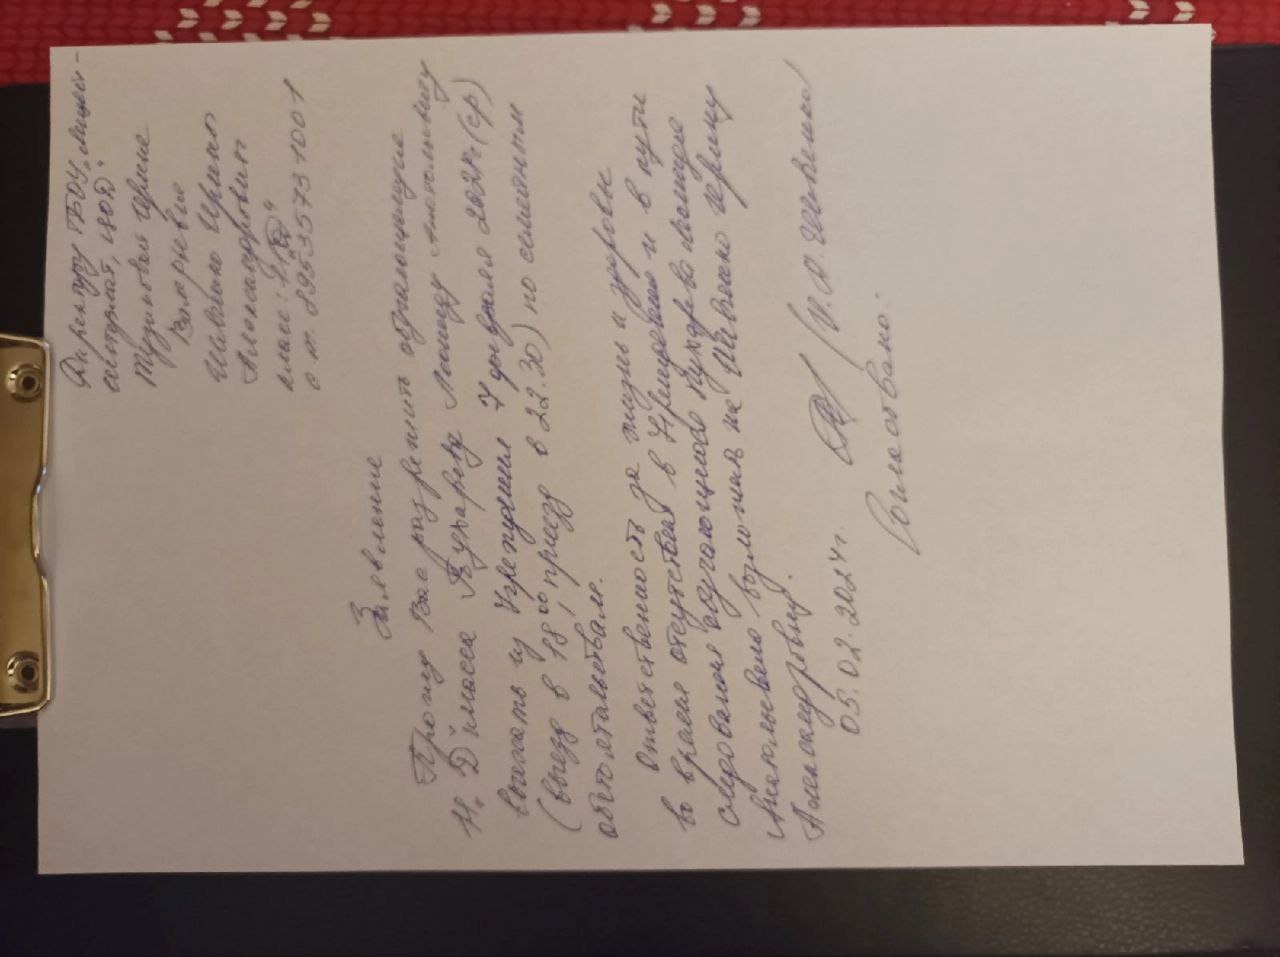 Директору ГБОУ „Лицей-
интернат „ЦОД“
Ирине
Валерьевне
Шевченко Ирина
Александровна
класс: 11 „D“
с.т. 89535731001
Заявление
Прошу Вас разрешить обучающемуся
11 „D“ класса Леониду Анатольевичу
выехать из Учреждения 7 февраля 2024г. (ср)
(выезд в 18 00, приезд в 22.30) по семейным
обстоятельствам.
Ответственность за жизнь и здоровье
во время отсутствия в Учреждении и в пути
следования обучающегося Леонида
Анатольевича возложена на Шевченко Ирину
Александровну.
05.02.2024г. / И.А. Шевченко /
Согласовано: